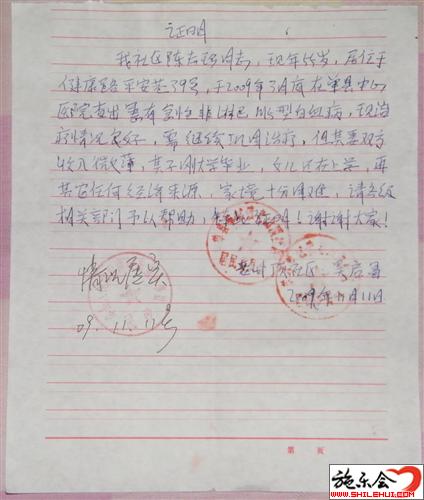 证明
我社区陈志强同志，现年45岁，居住于
健康路平安巷39号，于2009年3月底在单县中心
医院查出患有急性非淋巴M5型白血病，现治
疗情况良好，需继续巩固治疗，但其妻双方
收入微薄，其子刚大学毕业，女儿还在上学，再
其它任何经济来源，家境十分困难，请各级
相关部门予以帮助，特此证明！谢谢大家！
社区
2009年11月11日
情况属实
09.11.11号
居民委员
第 页
施乐会
WWW.SHILEHUI.COM